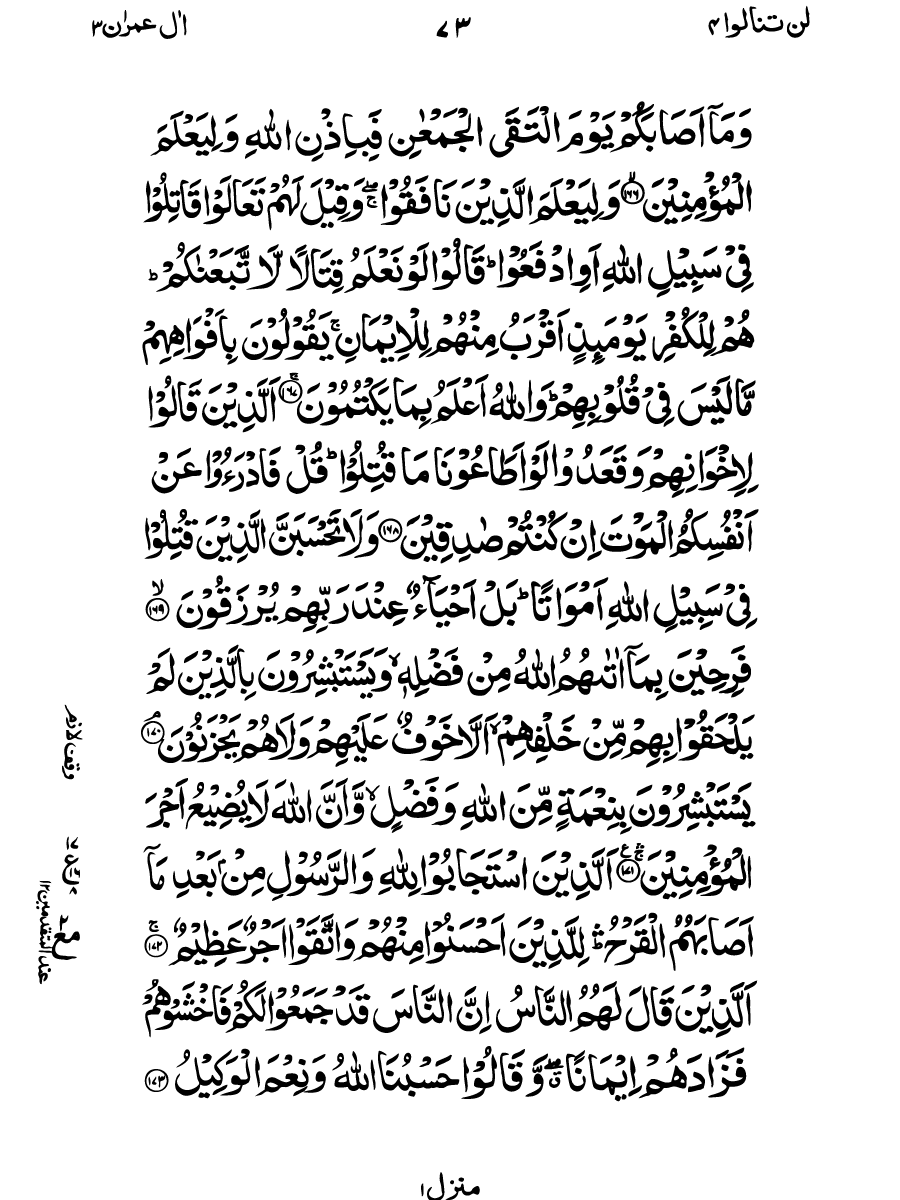 لن تنالوا ۴
۷۳
اٰل عمرٰن ۳
وَمَاۤ اَصَابَكُمْ يَوْمَ الْتَقَى الْجَمْعٰنِ فَبِاِذْنِ اللّٰهِ وَلِيَعْلَمَ
الْمُؤْمِنِيْنَ ۙ‏﴿۱۶۶﴾ وَلِيَعْلَمَ الَّذِيْنَ نَافَقُوْا ۖۚ وَقِيْلَ لَهُمْ تَعَالَوْا قَاتِلُوْا
فِىْ سَبِيْلِ اللّٰهِ اَوِ ادْفَعُوْا ؕ قَالُوْا لَوْ نَعْلَمُ قِتَالًا لَّا تَّبَعْنٰكُمْ ؕ
هُمْ لِلْكُفْرِ يَوْمَىِٕذٍ اَقْرَبُ مِنْهُمْ لِلْاِيْمَانِ ۚ يَقُوْلُوْنَ بِاَفْوَاهِهِمْ
مَّا لَيْسَ فِىْ قُلُوْبِهِمْ ؕ وَاللّٰهُ اَعْلَمُ بِمَا يَكْتُمُوْنَ ۚ‏﴿۱۶۷﴾ اَلَّذِيْنَ قَالُوْا
لِاِخْوَانِهِمْ وَقَعَدُوْا لَوْ اَطَاعُوْنَا مَا قُتِلُوْا ؕ قُلْ فَادْرَءُوْا عَنْ
اَنْفُسِكُمُ الْمَوْتَ اِنْ كُنْتُمْ صٰدِقِيْنَ ‏﴿۱۶۸﴾ وَلَا تَحْسَبَنَّ الَّذِيْنَ قُتِلُوْا
فِىْ سَبِيْلِ اللّٰهِ اَمْوَاتًا ؕ بَلْ اَحْيَآءٌ عِنْدَ رَبِّهِمْ يُرْزَقُوْنَ ۙ‏﴿۱۶۹﴾
فَرِحِيْنَ بِمَاۤ اٰتٰٮهُمُ اللّٰهُ مِنْ فَضْلِهٖ ۙ وَيَسْتَبْشِرُوْنَ بِالَّذِيْنَ لَمْ
يَلْحَقُوْا بِهِمْ مِّنْ خَلْفِهِمْ ۙ اَلَّا خَوْفٌ عَلَيْهِمْ وَلَا هُمْ يَحْزَنُوْنَ ۘ‏﴿۱۷۰﴾
يَسْتَبْشِرُوْنَ بِنِعْمَةٍ مِّنَ اللّٰهِ وَفَضْلٍ ۙ وَّاَنَّ اللّٰهَ لَا يُضِيْعُ اَجْرَ
الْمُؤْمِنِيْنَ ۛۚ ‏﴿۱۷۱﴾ اَلَّذِيْنَ اسْتَجَابُوْا لِلّٰهِ وَالرَّسُوْلِ مِنْۢ بَعْدِ مَاۤ
اَصَابَهُمُ الْقَرْحُ ۛؕ لِلَّذِيْنَ اَحْسَنُوْا مِنْهُمْ وَاتَّقَوْا اَجْرٌ عَظِيْمٌ ۚ‏﴿۱۷۲﴾
اَلَّذِيْنَ قَالَ لَهُمُ النَّاسُ اِنَّ النَّاسَ قَدْ جَمَعُوْا لَكُمْ فَاخْشَوْهُمْ
فَزَادَهُمْ اِيْمَانًا ۖۗ وَّقَالُوْا حَسْبُنَا اللّٰهُ وَنِعْمَ الْوَكِيْلُ ‏﴿۱۷۳﴾
وقف لازم
عند المتقدمين ۱۲
منزل ۱